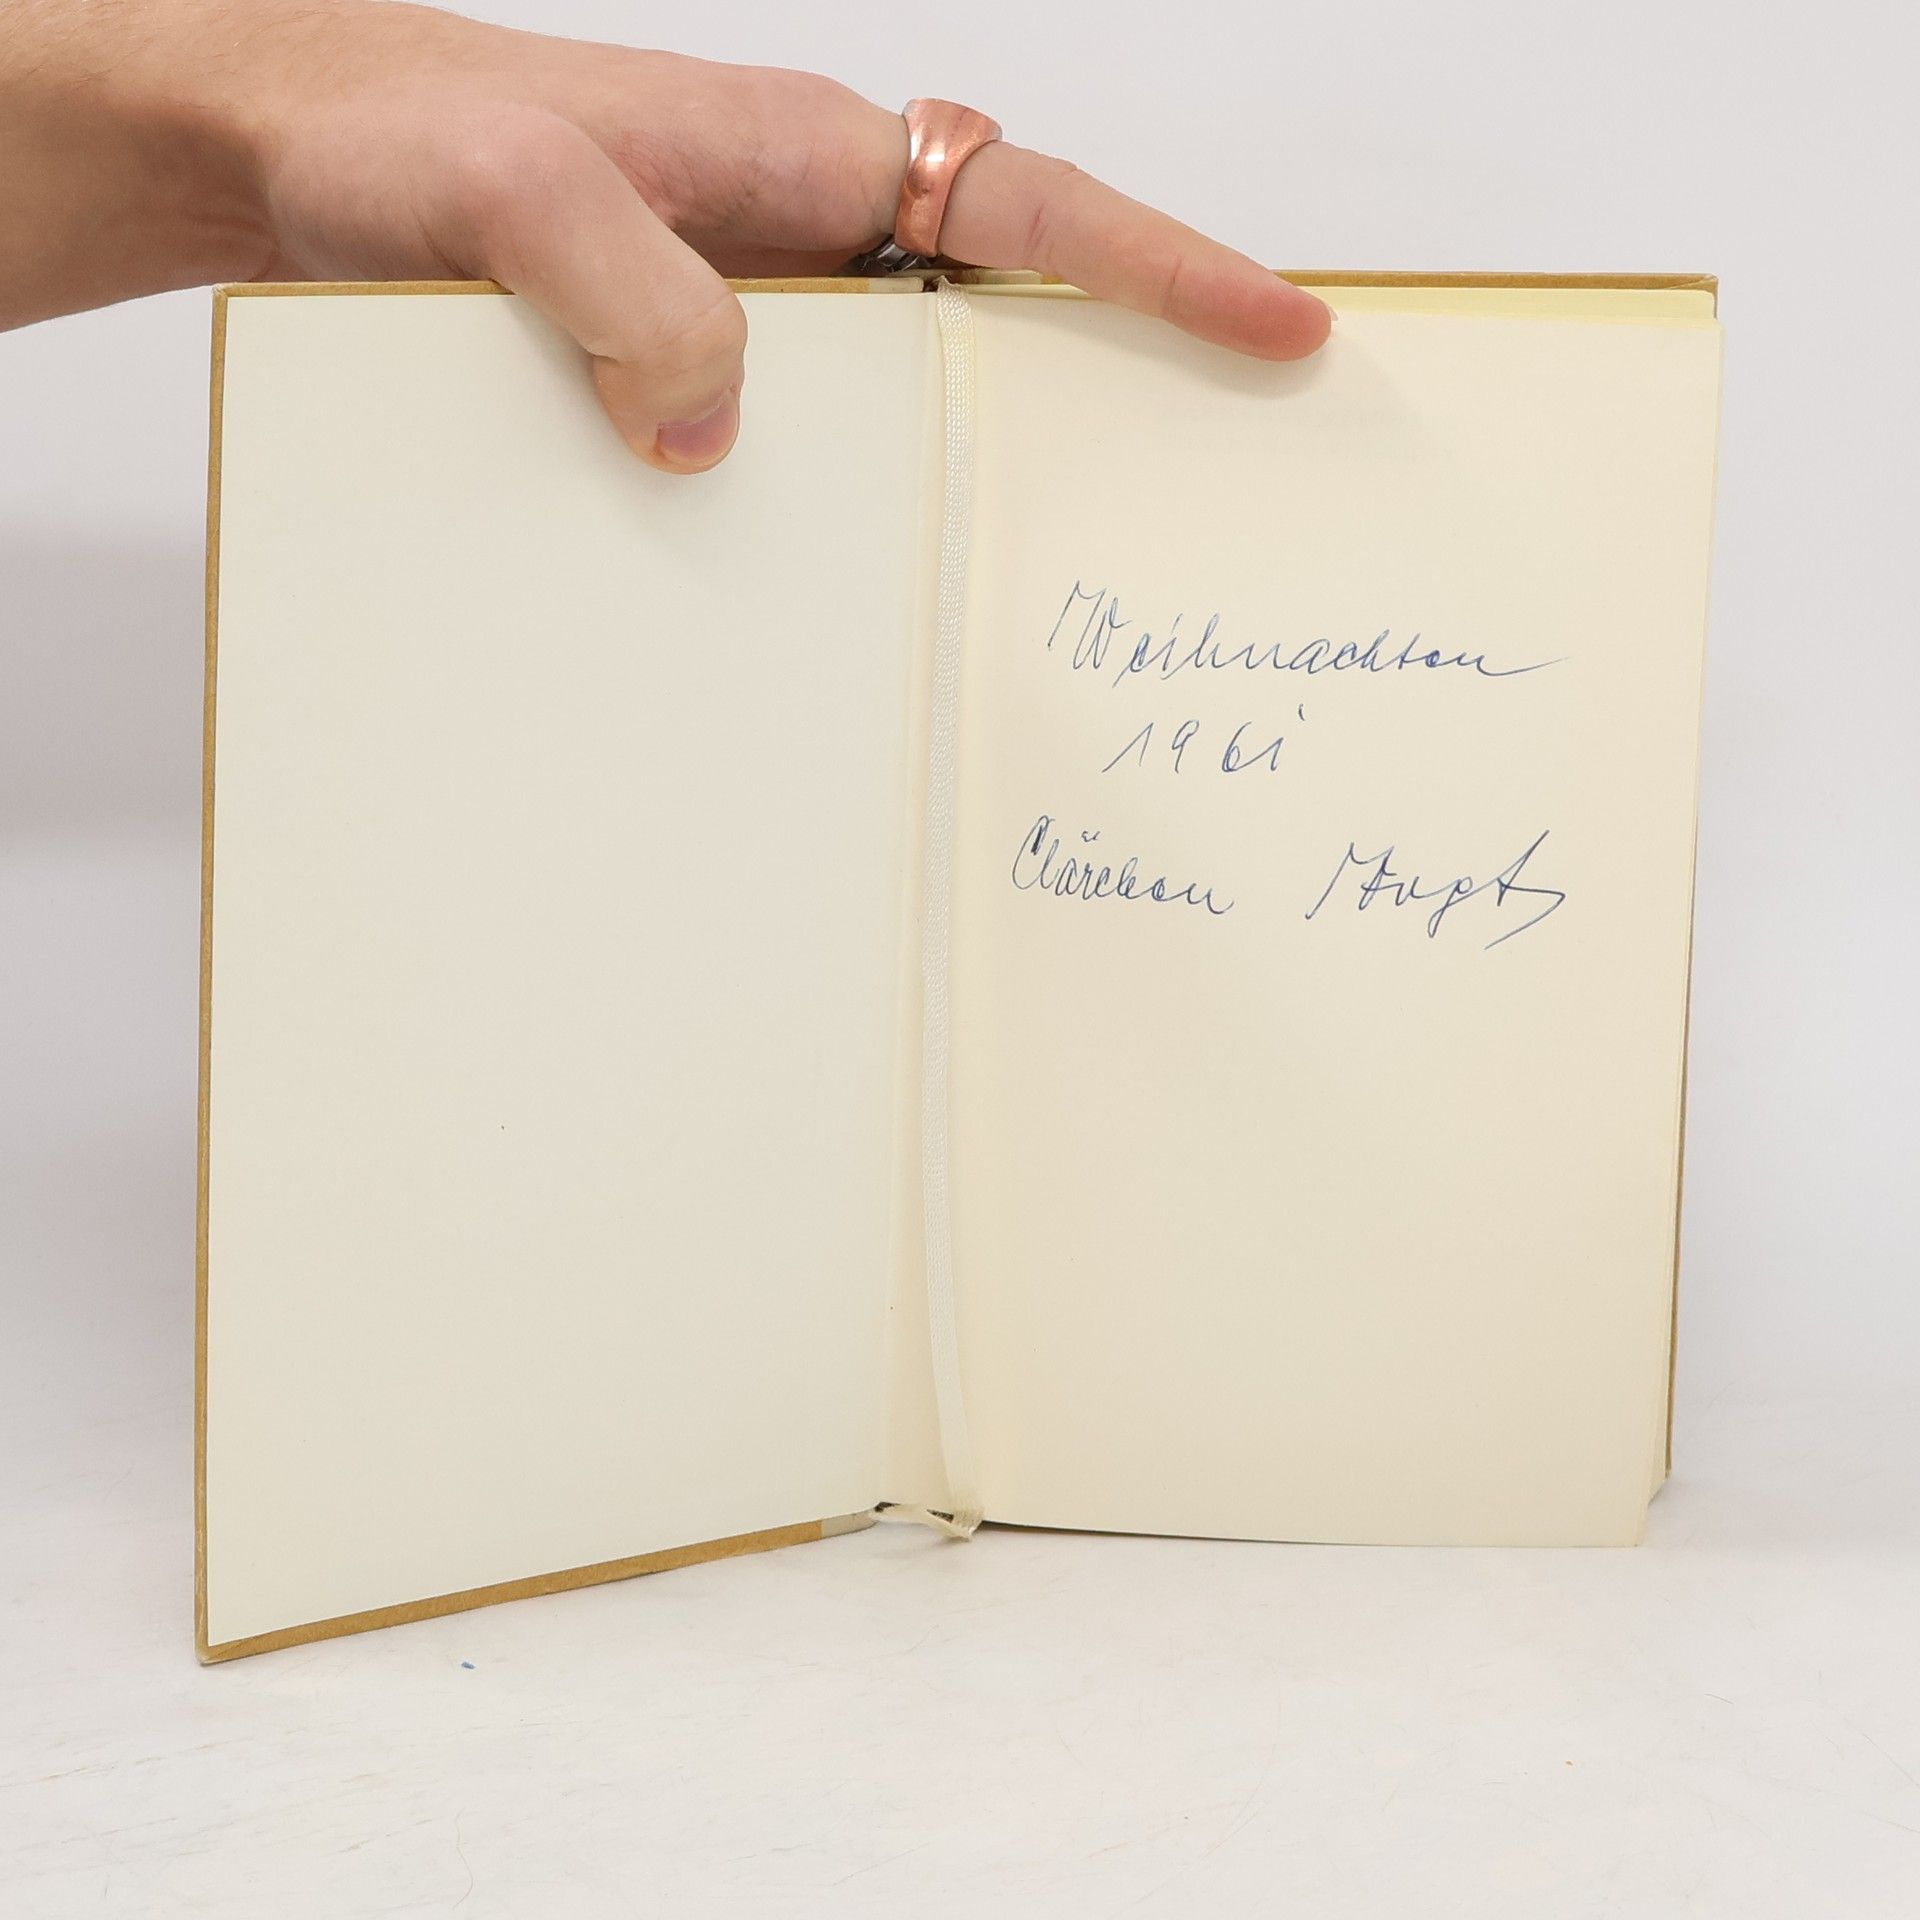 Weihnachten
1961
Clärchen Vogt